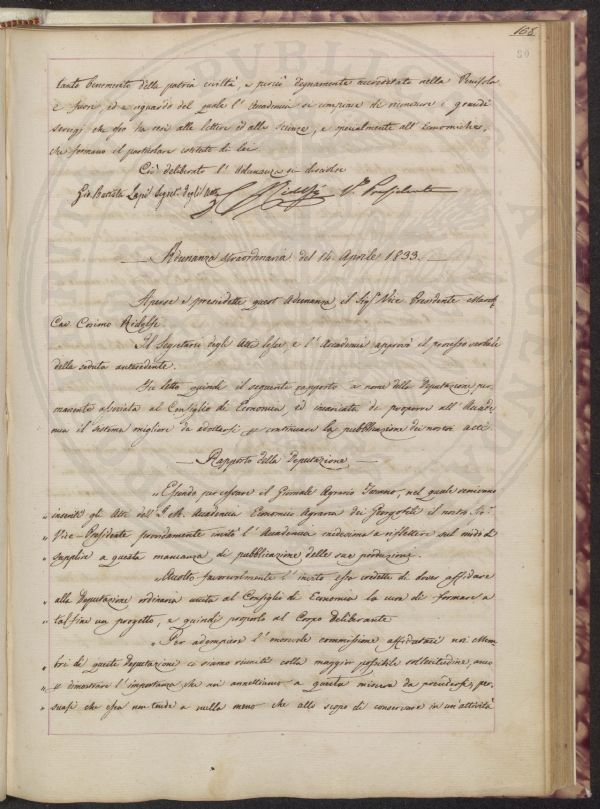 168.
80
tanto benemerito della patria civiltà, e perciò degnamente accreditato nella Penisola
e fuori, ed a riguardo del quale l'Academia si compiace di rammentare i grandi
servigj che esso ha resi alle lettere ed alle Scienze, e specialmente all'Economiche,
che formano il particolare istituto di Lei.
Ciò deliberato l'Adunanza si disciolse
Gio. Batista Lapi Segret. degli Atti C Ridolfi V. Presidente
Adunanza straordinaria del 14. Aprile 1833.
Aperse e presiedette quest'Adunanza il Sig. Vice Presidente March.
Cav. Cosimo Ridolfi.
Il Segretario degli Atti lesse, e l'Accademia approvò il processo verbale
della seduta antecedente.
Fu letto quindi il seguente rapporto a nome della Deputazione per-
manente associata al Consiglio di Economia, ed incaricata di proporre all'Accade-
mia il sistema migliore da adottarsi per continuare la pubblicazione dei nostri atti.
Rapporto della Deputazione
"Essendo per cessare il Giornale Agrario Toscano, nel quale venivano
inseriti gli Atti dell'I. e R. Accademia Economico Agraria dei Georgofili il nostro Sig.
" Vice-Presidente providamente invitò l'Accademia medesima a riflettere sul modo di
" supplire a questa mancanza di pubblicazione delle sue produzioni.
"Accolto favorevolmente l'invito essa credette di dover affidare
" alla Deputazione ordinaria unita al Consiglio di Economia la cura di formare a
" tal fine un progetto, e quindi proporlo al Corpo deliberante.
"Per adempiere l'onorevole commissione affidataci noi Mem-
" bri di questa Deputazione ci siamo riuniti colla maggior possibile sollecitudine, anco
" a dimostrare l'importanza che noi annettiamo a questa misura da prendersi, per-
" suasi che essa non tende a nulla meno che allo scopo di conservare in un'attività